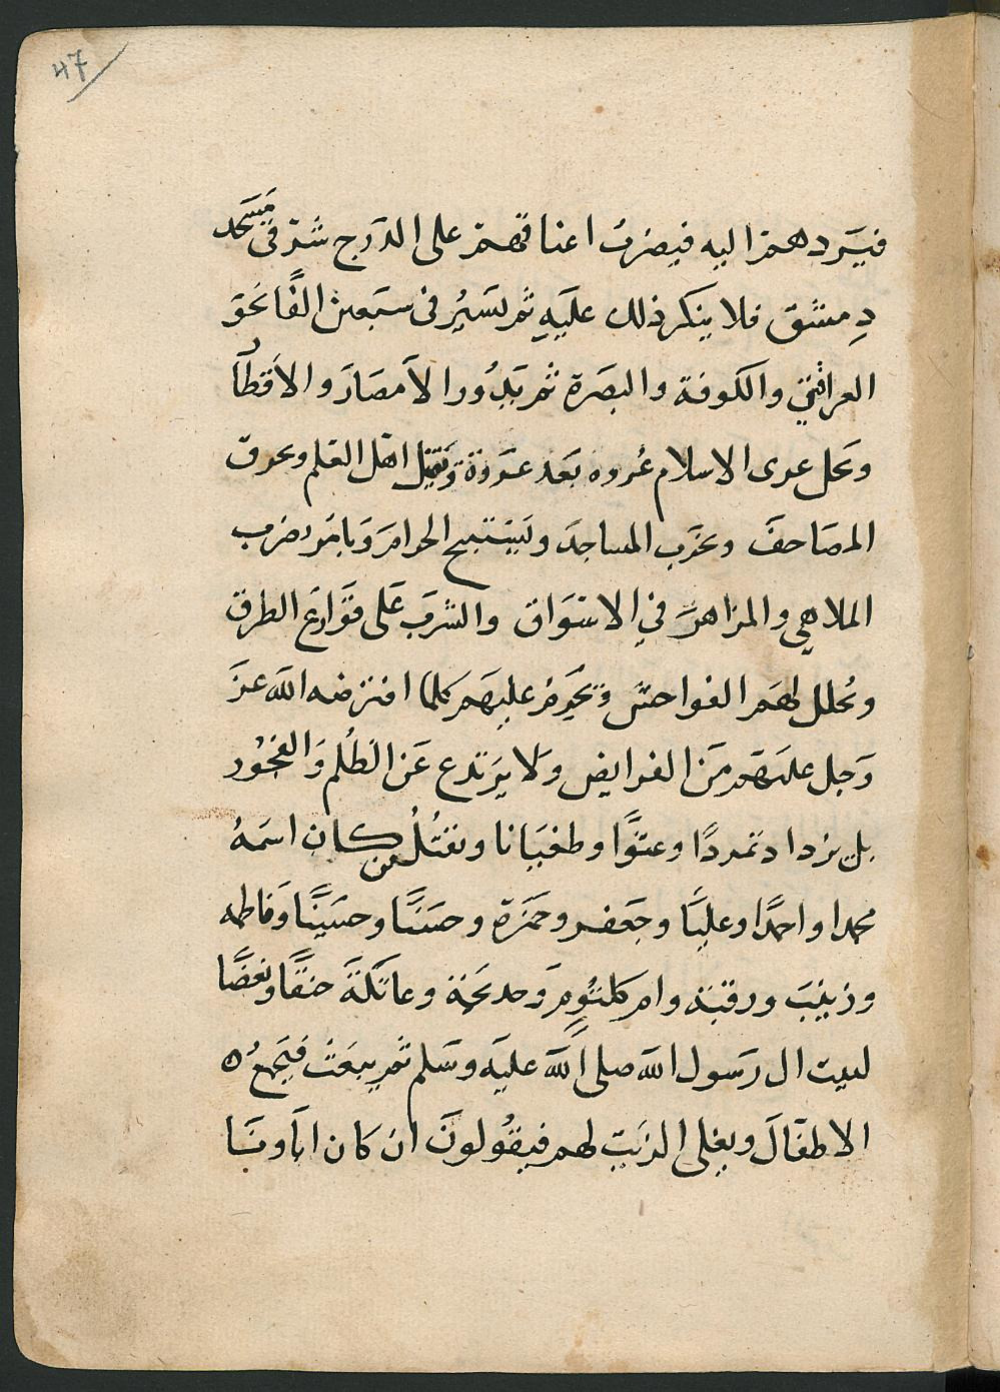 47
فيردهم اليه فيضرب اعناقهم على الدرج شرقى مسجد
دمشق فلا ينكر ذلك عليه ثم يسير فى سبعين الفا نحو
العراقين والكوفة والبصرة ثم يدور الامصار والاقطار
ويحل عرى الاسلام عروه بعد عروة ويقتل اهل العلم ويحرق
المصاحف ويخرب المساجد ويستبيح الحرام ويامر بضرب
الملاهي والمزاهر في الاسواق والشرب على قوارع الطرق
ويحلل لهم الفواحش ويحرم عليهم كلما افترضه الله عز
وجل عليهم من الفرايض ولا يرتدع عن الظلم والفجور
بل يزداد تمردا وعتوا وطغيانا ويقتل من كان اسمه
محمدا واحمدا وعليا وجعفر وحمزة وحسنا وحسينا وفاطمه
وزينب ورقية وام كلثوم وخديجة وعاتكة حنقا وبغضا
لبيت ال رسول الله صلى الله عليه وسلم ثم يبعث فيجمع
الاطفال ويغلى الزيت لهم فيقولون ان كان اباونا